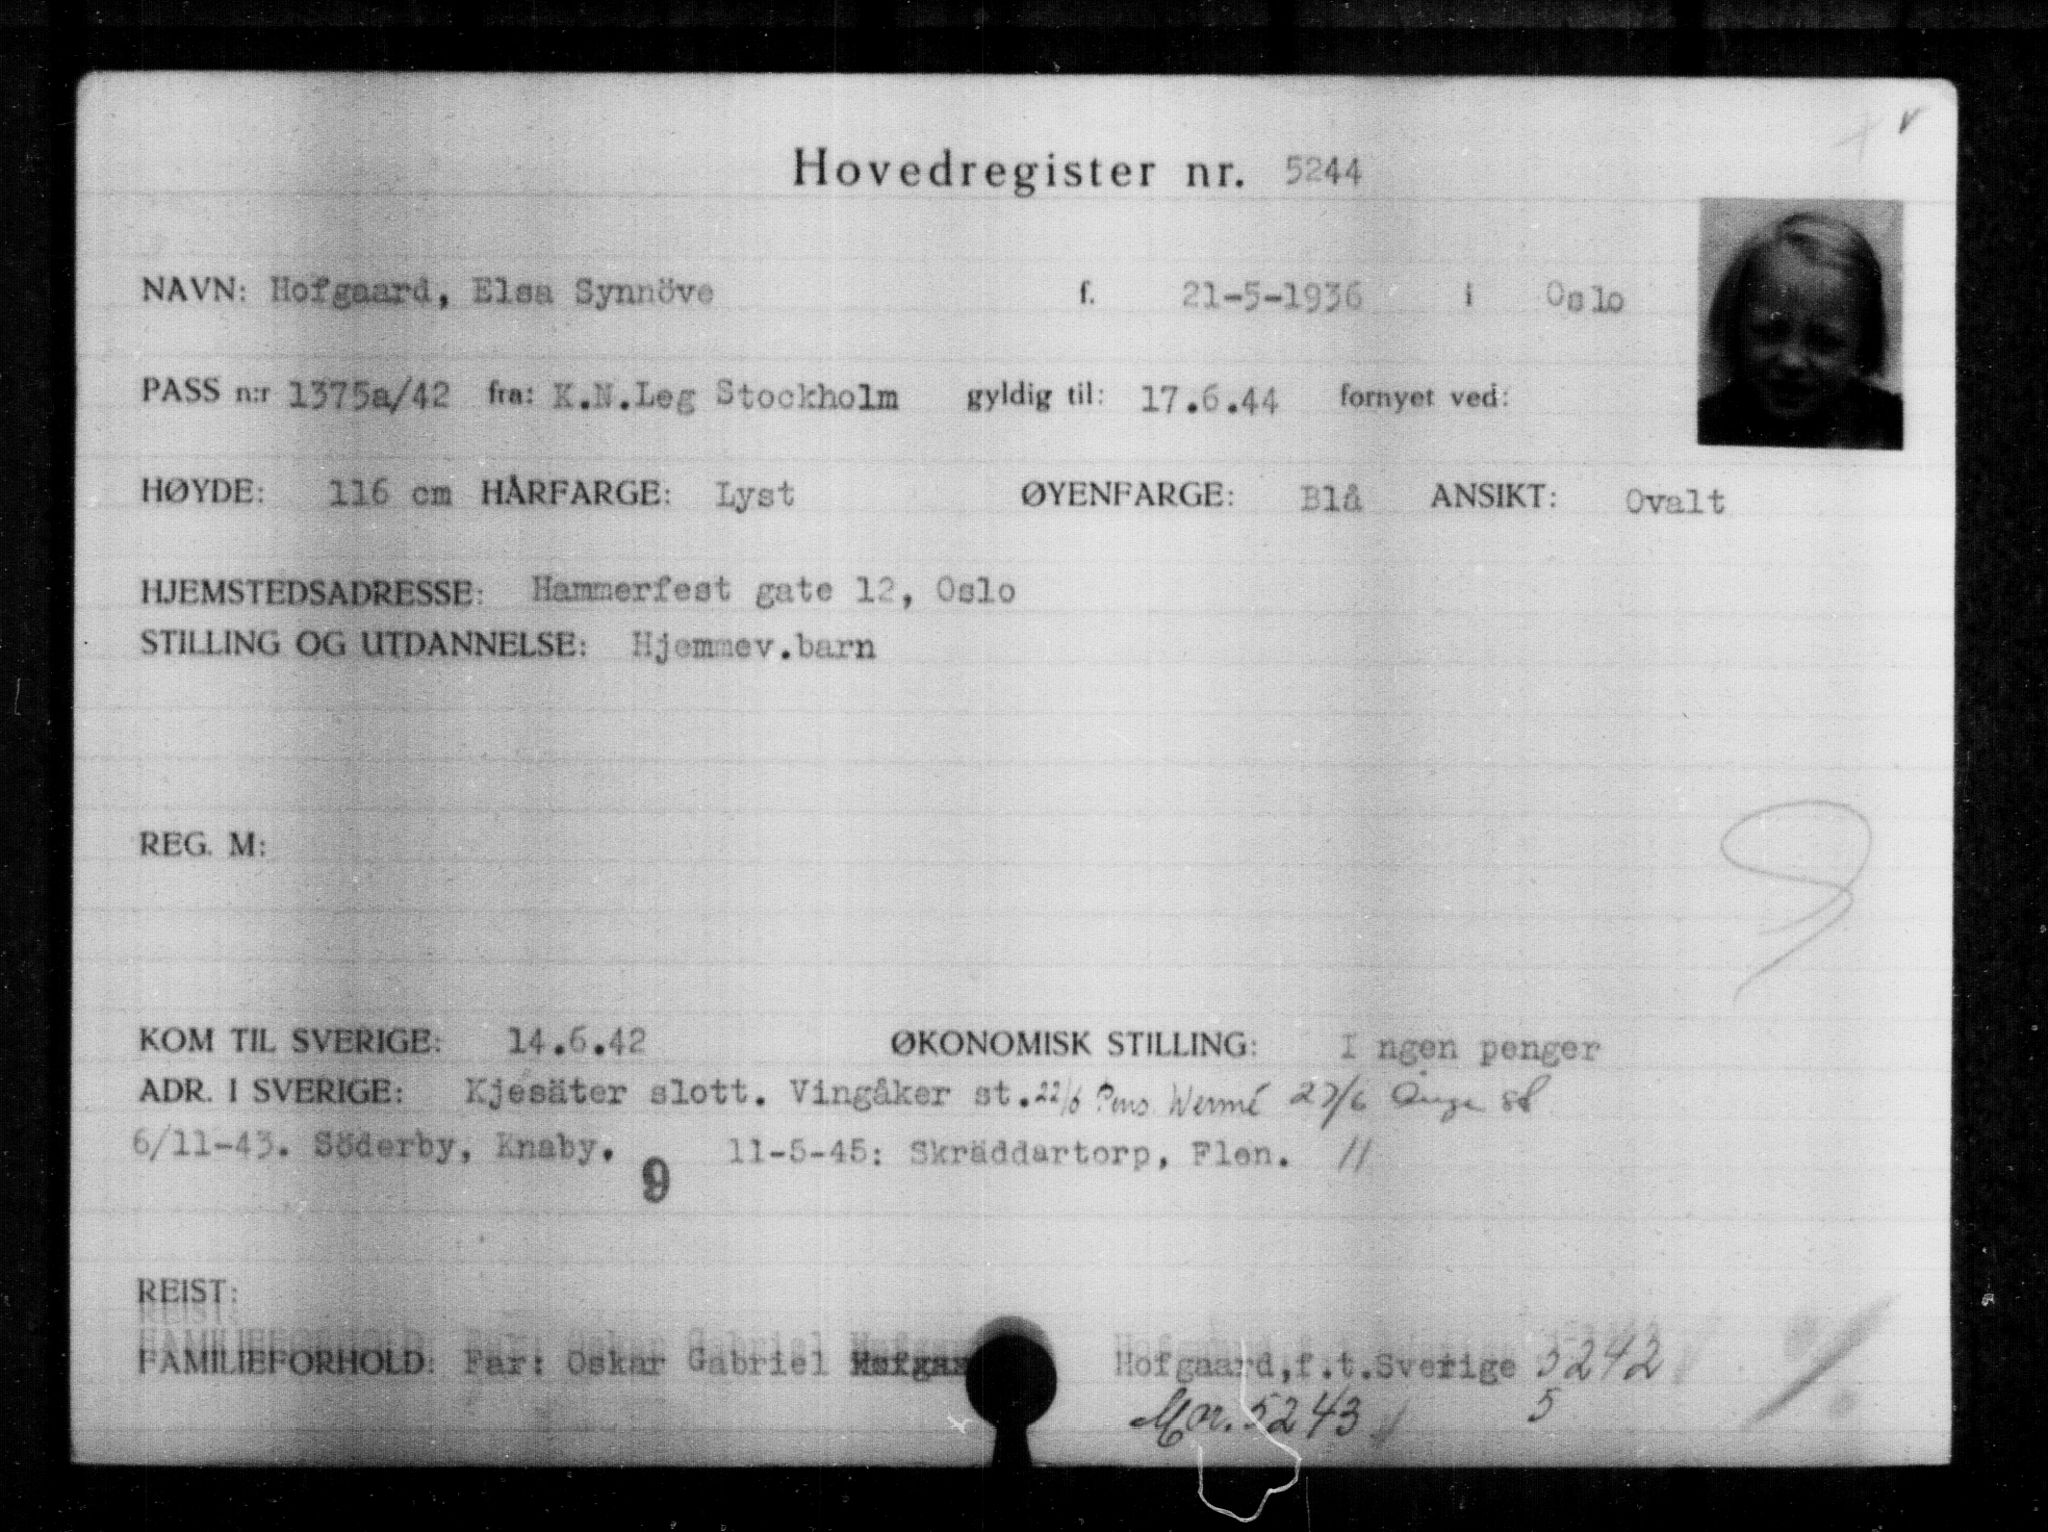 Hovedregister nr. 5244
NAVN: Hofgaard, Elsa Synnöve f. 21-5-1936 i Oslo
PASS n:r 1375a/42 fra: K.N.Leg Stockholm gyldig til: 17.6.44 fornyet ved:
HØYDE: 116 cm HÅRFARGE: Lyst ØYENFARGE: Blå ANSIKT: Ovalt
HJEMSTEDSADRESSE: Hammerfest gate 12, Oslo
STILLING OG UTDANNELSE: Hjemmev.barn
REG. M:
KOM TIL SVERIGE: 14.6.42 ØKONOMISK STILLING: I ngen penger
ADR. I SVERIGE: Kjesäter slott. Vingåker st. 22/6 Pens. 27/6
6/11-43. Söderby, Knaby. 11-5-45: Skräddartorp, Flen. //
9
REIST:
FAMILIEFORHOLD: Far: Oskar Gabriel Hofgaard, f.t. Sverige 5242
Mor. 5243 5